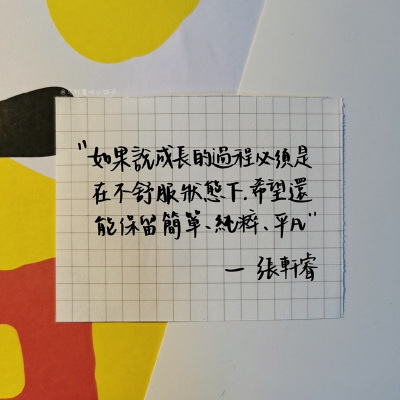 "如果說成長的過程必須是
在不舒服狀態下.希望還
能保留簡單、純粹、平凡"
— 張軒睿